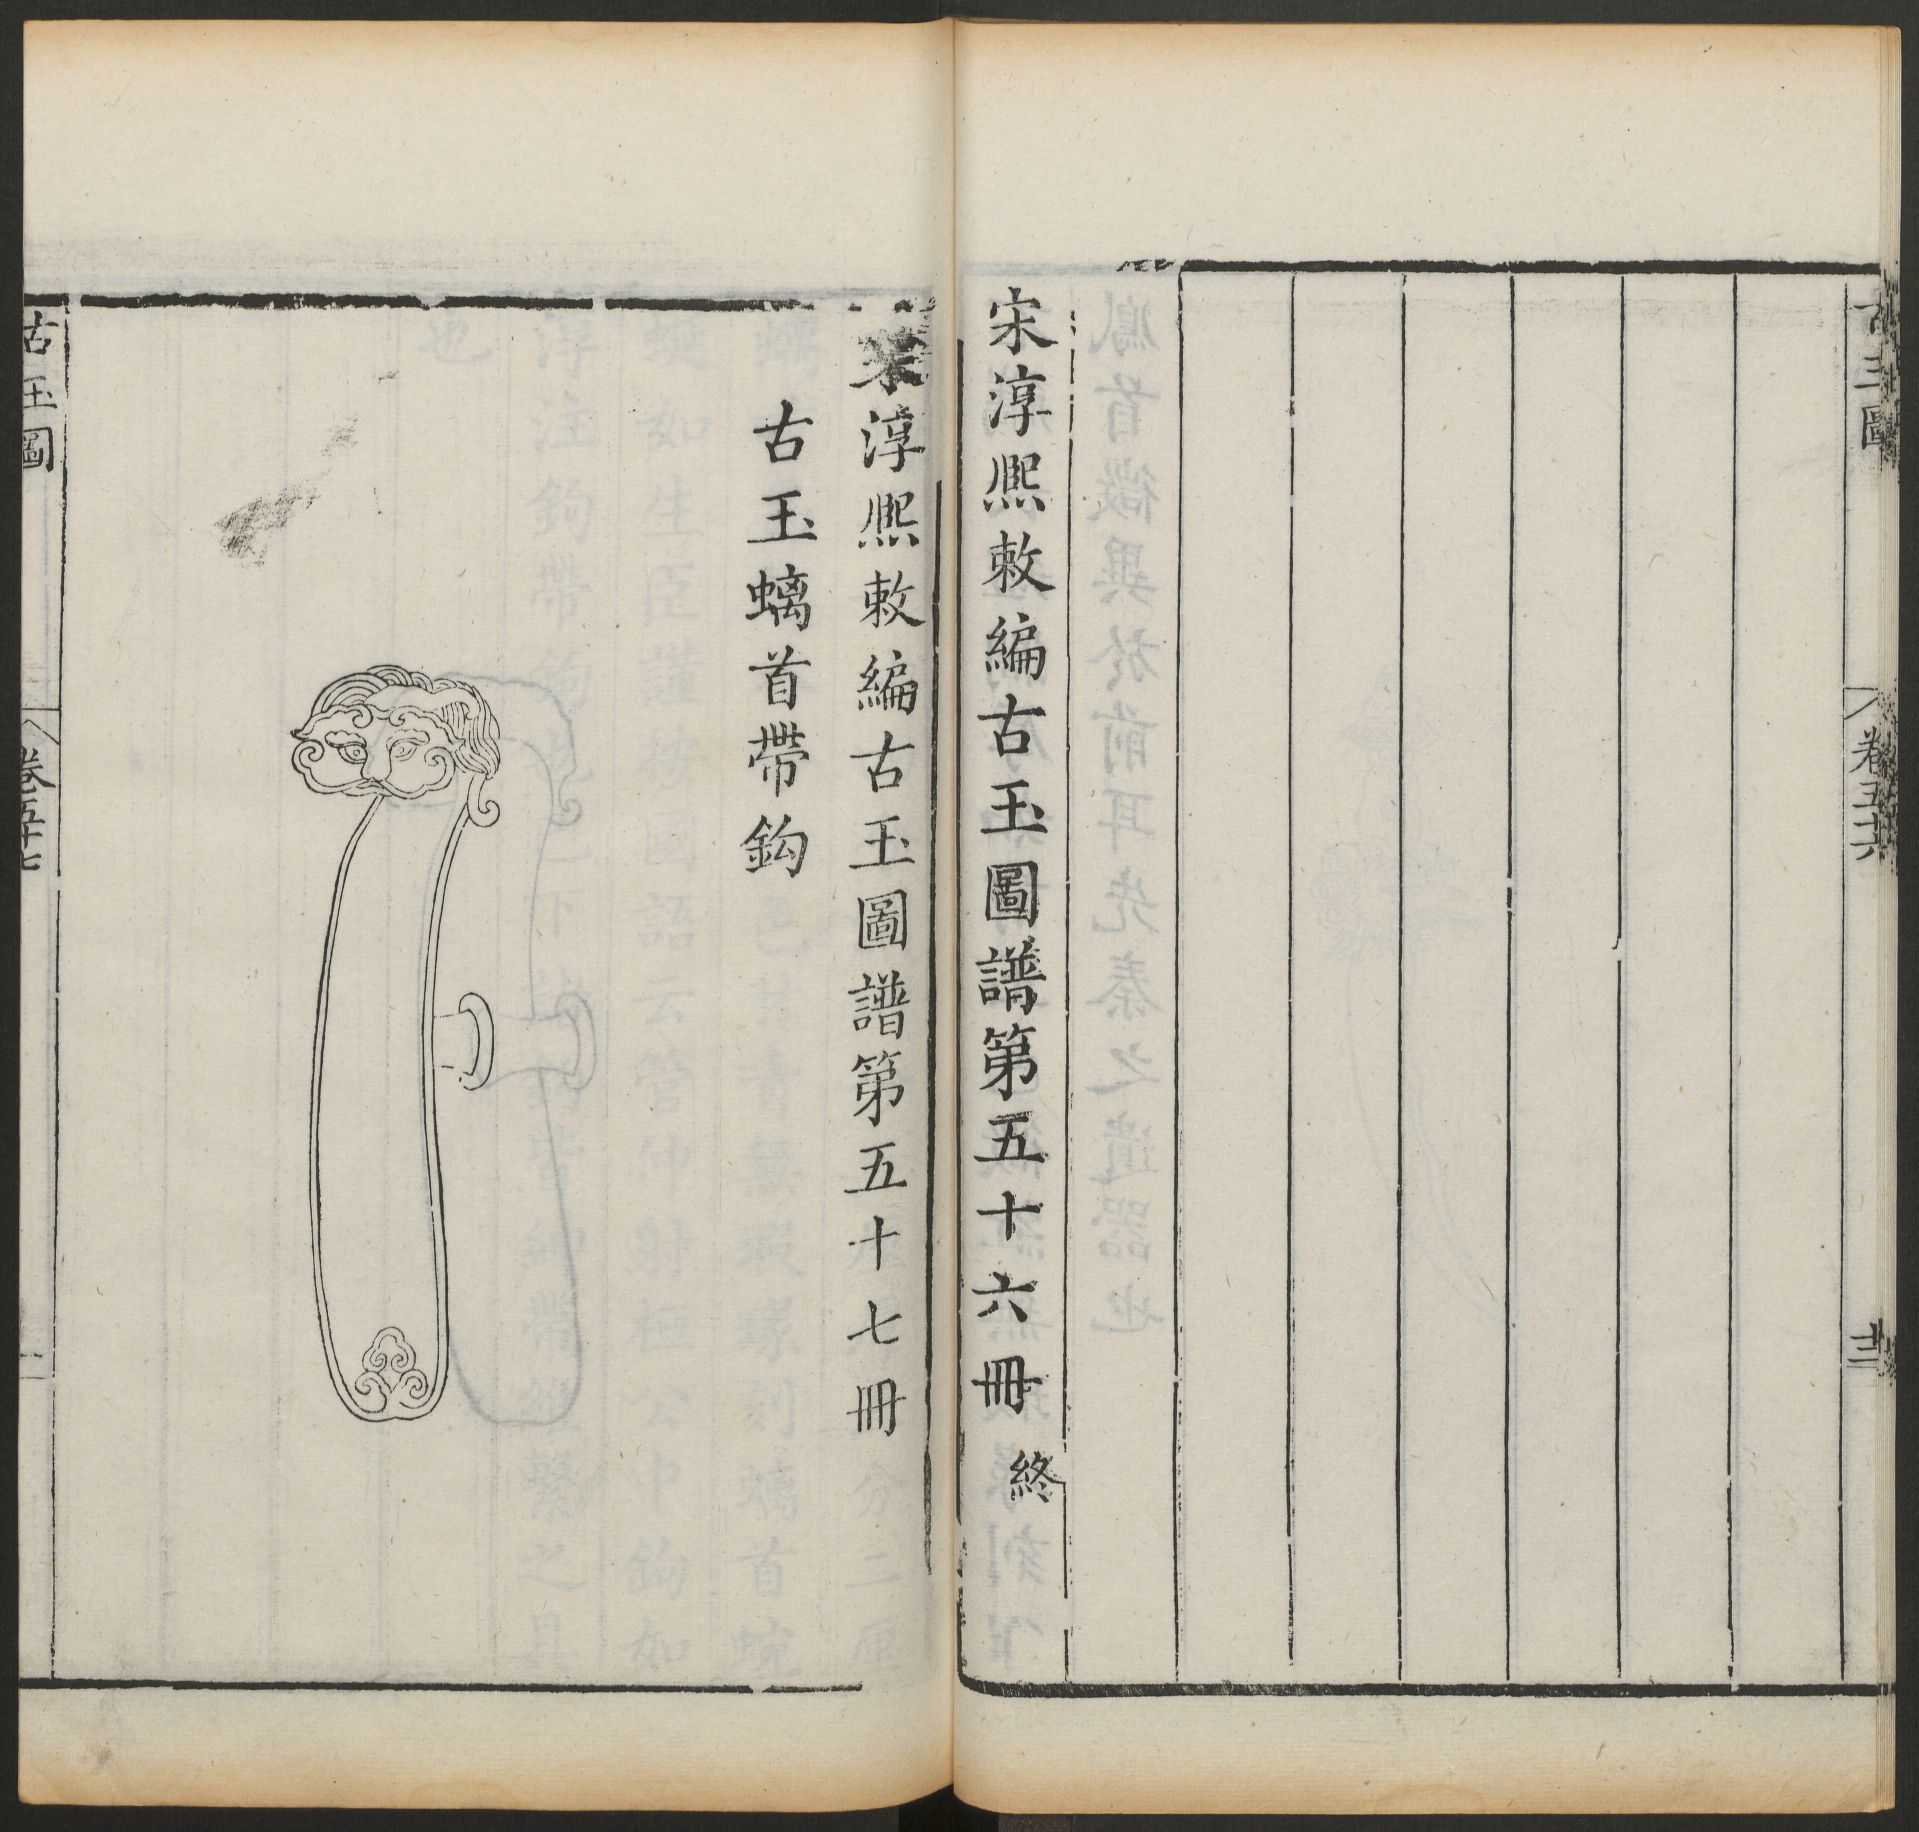 古玉圖
卷五十六
宋淳熙敕編古玉圖譜第五十六冊 終
宋淳熙敕編古玉圖譜第五十七冊
古玉螭首帶鈎
古玉圖
卷五十七